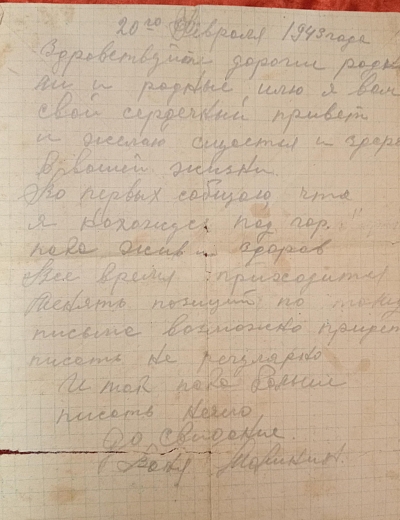 20го Февраля 1943 года
Здравствуйте дороги родк
ки и родные шлю я вам
свой сердечний привет
и желаю счастья и здоро
в вашей жизни
Во первых собщаю что
я нахожусь под гор.
пока жив и здоров
Все время приходится
менять позиции по
письма возможно придет
писать не регулярно
И так пока больши
писать нечго
До свидание.
Ваня